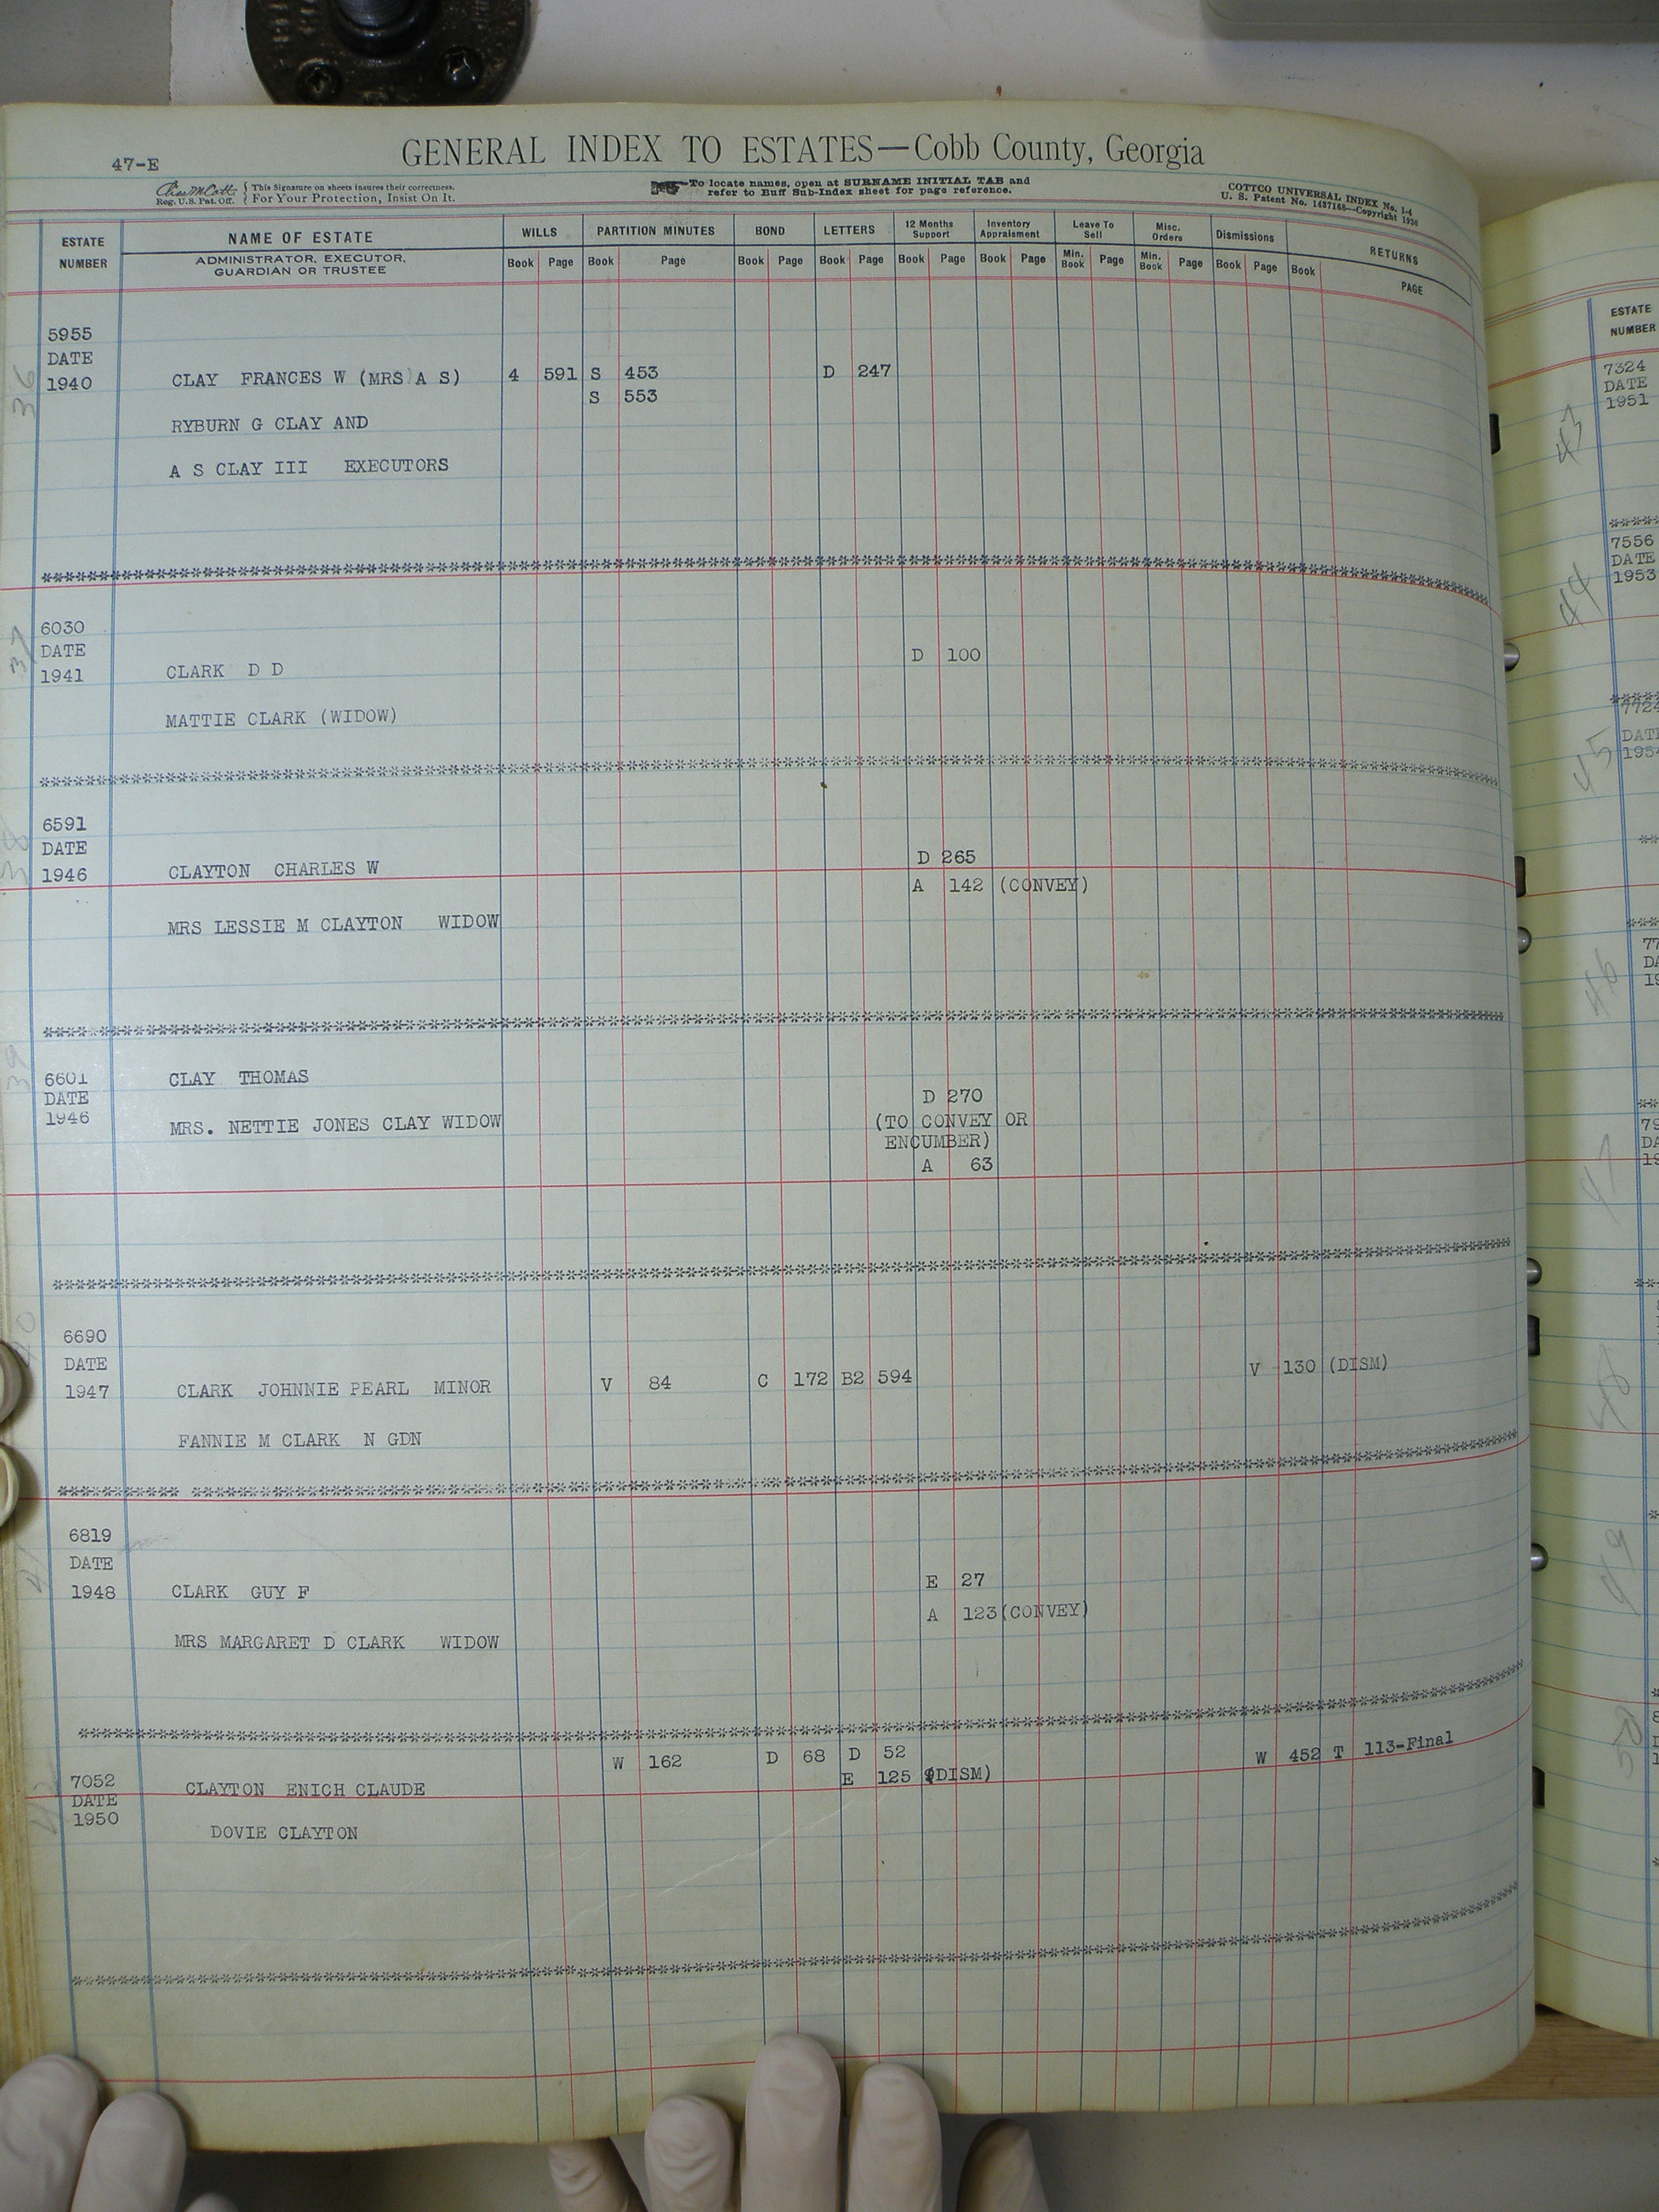 47-E
GENERAL INDEX TO ESTATES—Cobb County, Georgia
Reg. U.S. Pat. Off.
This Signature on sheets insures their correctness.
For Your Protection, Insist On It.
To locate names, open at SURNAME INITIAL TAB and
refer to Buff Sub-Index sheet for page reference.
COTTCO UNIVERSAL INDEX No. 1-4
U. S. Patent No. 1437168—Copyright 1936
ESTATE NUMBER
NAME OF ESTATE
ADMINISTRATOR, EXECUTOR,
GUARDIAN OR TRUSTEE
WILLS PARTITION MINUTES BOND LETTERS 12 Months Support Inventory Appraisment Leave To Sell Misc. Orders Dismissions RETURNS
Book Page Book Page Book Page Book Page Book Page Book Page Min. Book Page Min. Book Page Book Page Book PAGE
36
5955
DATE
1940 CLAY FRANCES W (MRS A S) 4 591 S 453 D 247
S 553
RYBURN G CLAY AND
A S CLAY III EXECUTORS
37
6030
DATE
D 100
1941 CLARK D D
MATTIE CLARK (WIDOW)
38
6591
DATE
D 265
1946 CLAYTON CHARLES W
A 142 (CONVEY)
MRS LESSIE M CLAYTON WIDOW
39
6601 CLAY THOMAS
DATE D 270
1946 MRS. NETTIE JONES CLAY WIDOW (TO CONVEY OR
ENCUMBER)
A 63
40
6690
DATE
V 130 (DISM)
1947 CLARK JOHNNIE PEARL MINOR V 84 C 172 B2 594
FANNIE M CLARK N GDN
41
6819
DATE
1948 CLARK GUY F E 27
A 123(CONVEY)
MRS MARGARET D CLARK WIDOW
W 162 D 68 D 52 W 452 T 113-Final
E 125 (DISM)
7052 CLAYTON ENICH CLAUDE
DATE
1950 DOVIE CLAYTON
ESTATE
NUMBER
43
7324
DATE
1951
44
7556
DATE
1953
45
7724
46
47
48
49
50